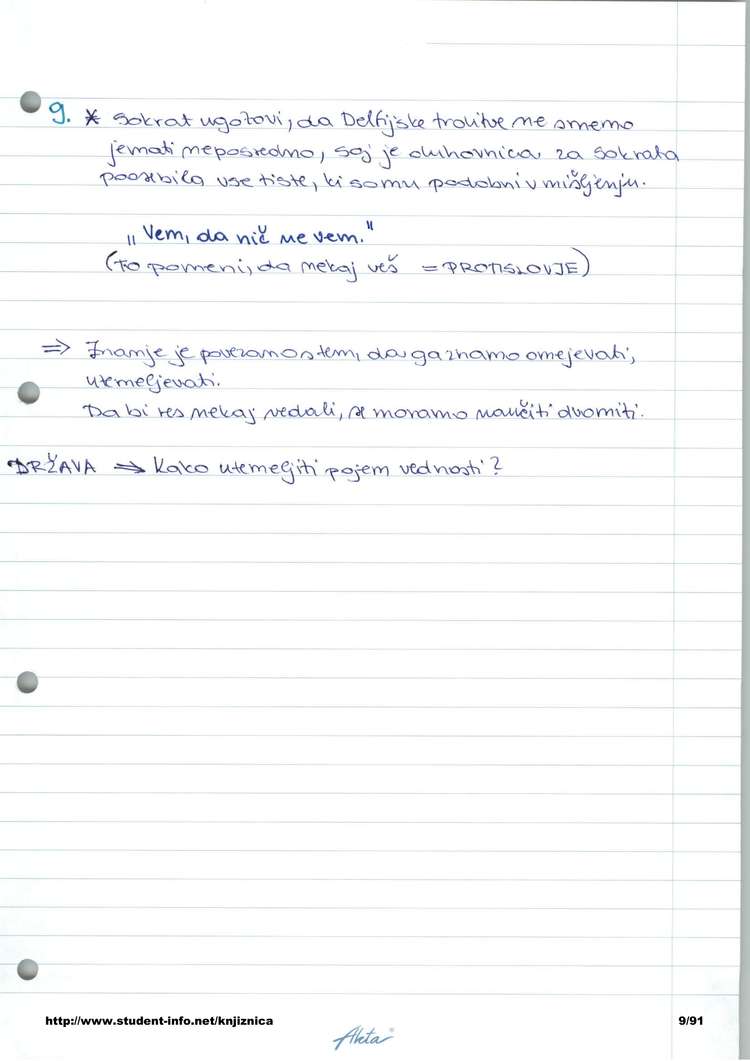 9. * Sokrat ugotovi, da Delfijske trditve ne smemo
jemati neposredno, saj je duhovnica za Sokrata
posebila vse tiste, ki so mu podobni v mišljenju.
„Vem, da nič ne vem."
(to pomeni, da nekaj veš = PROTISLOVJE)
⇒ Znanje je povezano s tem, da ga znamo omejevati,
utemeljevati.
Da bi res nekaj vedali, se moramo naučiti dvomiti.
DRŽAVA ⇒ Kako utemeljiti pojem vednosti?
http://www.student-info.net/knjiznica
9/91
Akta